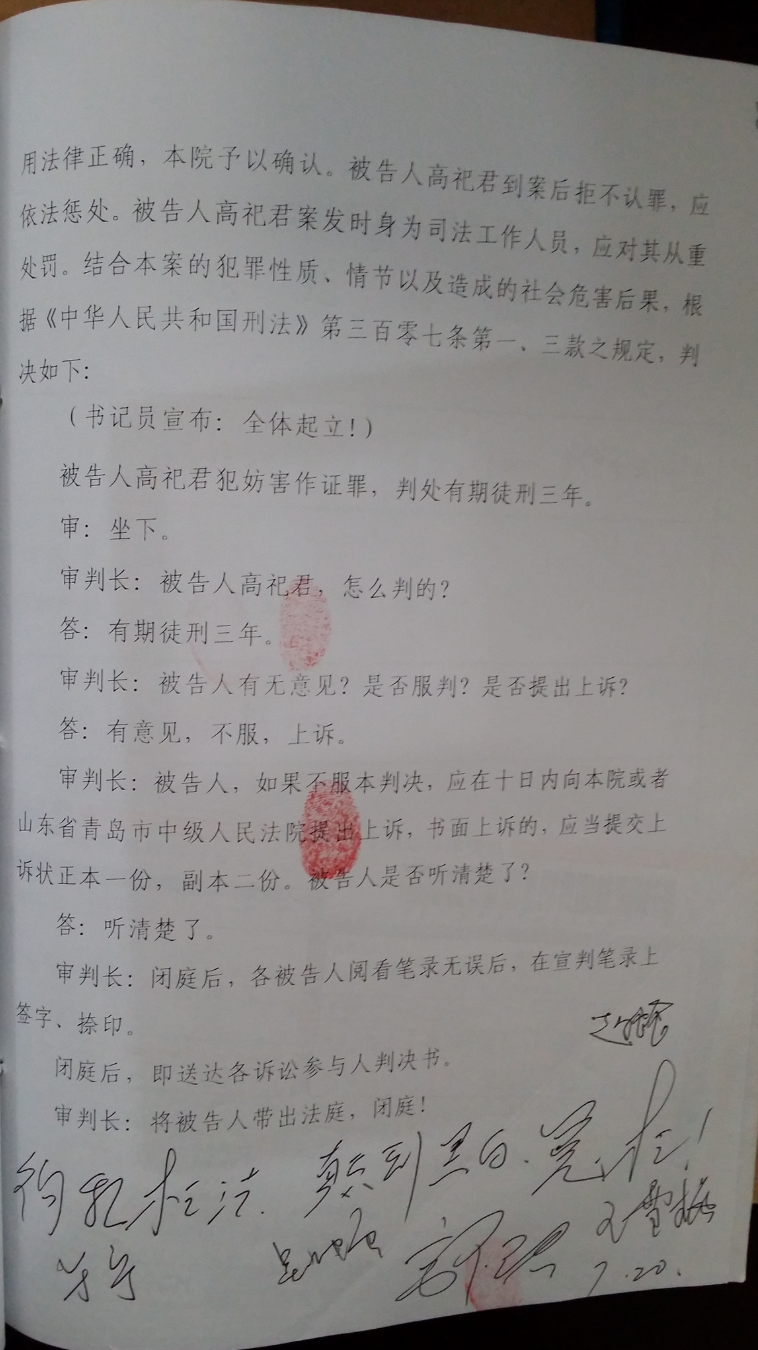 用法律正确，本院予以确认。被告人高祀君到案后拒不认罪，应
依法惩处。被告人高祀君案发时身为司法工作人员，应对其从重
处罚。结合本案的犯罪性质、情节以及造成的社会危害后果，根
据《中华人民共和国刑法》第三百零七条第一、三款之规定，判
决如下：
（书记员宣布：全体起立！）
被告人高祀君犯妨害作证罪，判处有期徒刑三年。
审：坐下。
审判长：被告人高祀君，怎么判的？
答：有期徒刑三年。
审判长：被告人有无意见？是否服判？是否提出上诉？
答：有意见，不服，上诉。
审判长：被告人，如果不服本判决，应在十日内向本院或者
山东省青岛市中级人民法院提出上诉，书面上诉的，应当提交上
诉状正本一份，副本二份。被告人是否听清楚了？
答：听清楚了。
审判长：闭庭后，各被告人阅看笔录无误后，在宣判笔录上
签字、捺印。
闭庭后，即送达各诉讼参与人判决书。
审判长：将被告人带出法庭，闭庭！
枉法 颠到黑白 冤枉！
7.20.